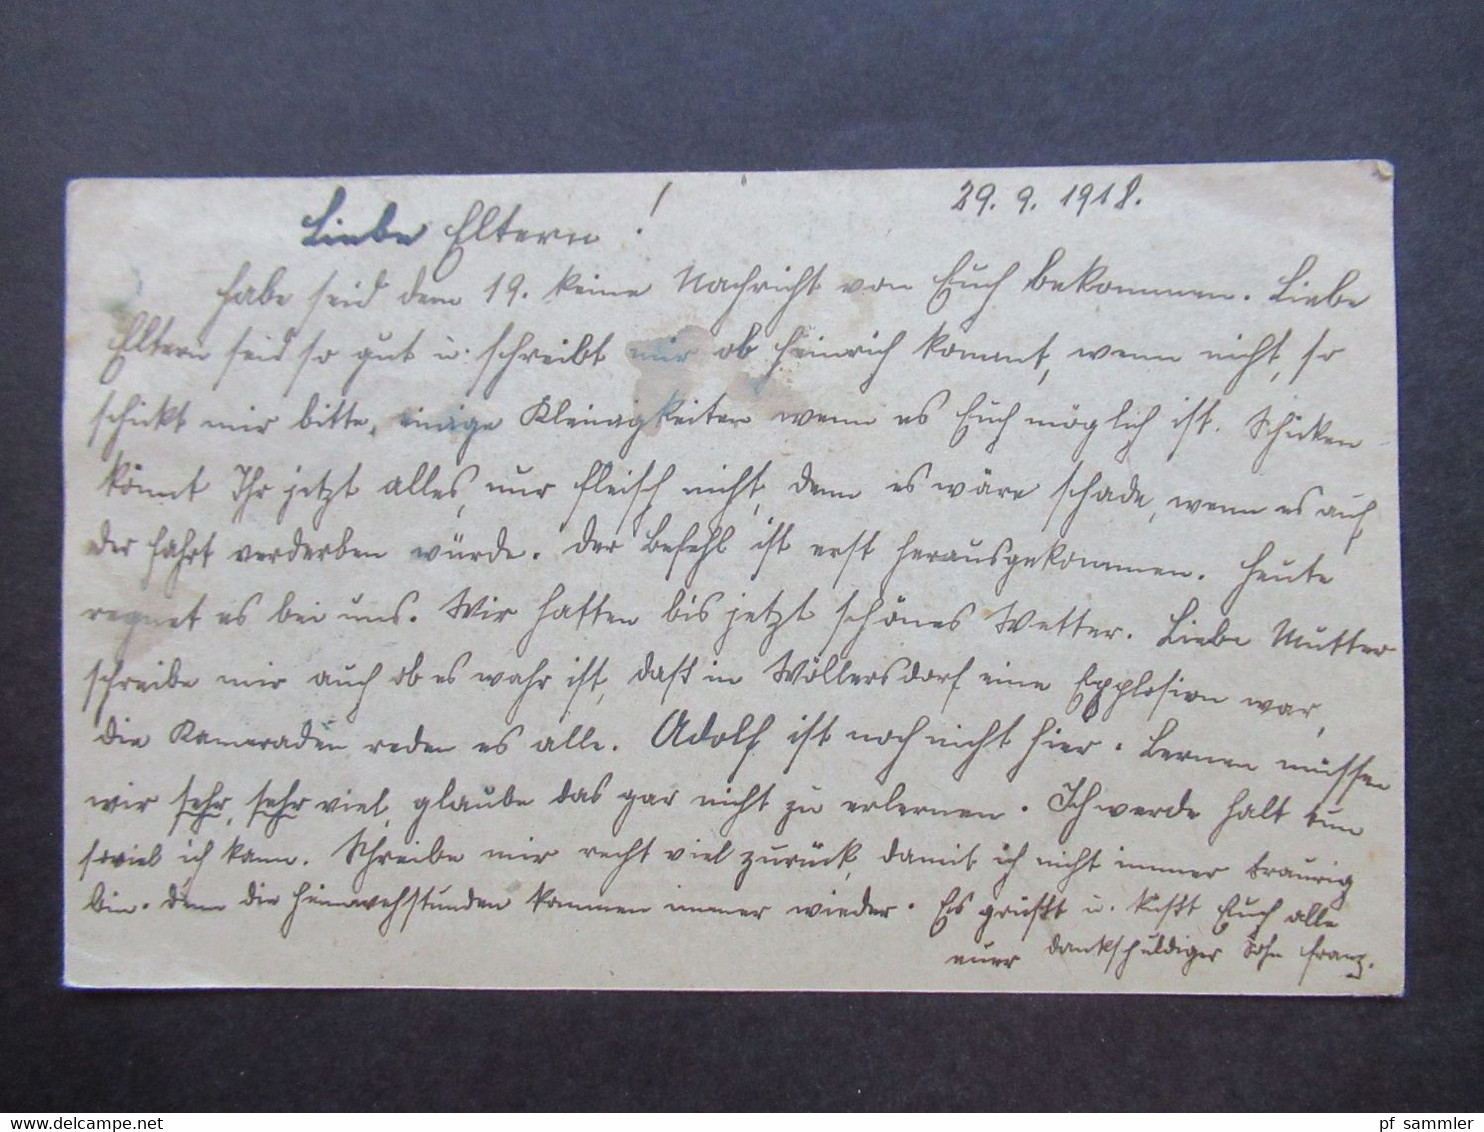 Liebe Eltern! 29. 9. 1918.
Habe seid dem 19. keine Nachricht von Euch bekommen. Liebe
Eltern seid so gut u. schreibt mir ob Heinrich kommt, wenn nicht, so
schickt mir bitte, einige Kleinigkeiten wenn es Euch möglich ist. Schicken
könnt Ihr jetzt alles, nur Fleisch nicht, denn es wäre schade, wenn es auf
der Fahrt verderben würde. Der Befehl ist erst herausgekommen. Heute
regnet es bei uns. Wir hatten bis jetzt schönes Wetter. Liebe Mutter
schreibe mir auch ob es wahr ist, daß in Wöllersdorf eine Explosion war,
die Kameraden reden es alle. Adolf ist noch nicht hier. Lernen müssen
wir sehr, sehr viel, glaube das gar nicht zu erlernen. Ich werde halt tun
soviel ich kann. Schreibe mir recht viel zurück, damit ich nicht immer traurig
bin. Denn die Heimwehstunden kommen immer wieder. Es grüßt u. küßt Euch alle
euer dankschuldiger Sohn Franz.
pf sammler
delcampe.net